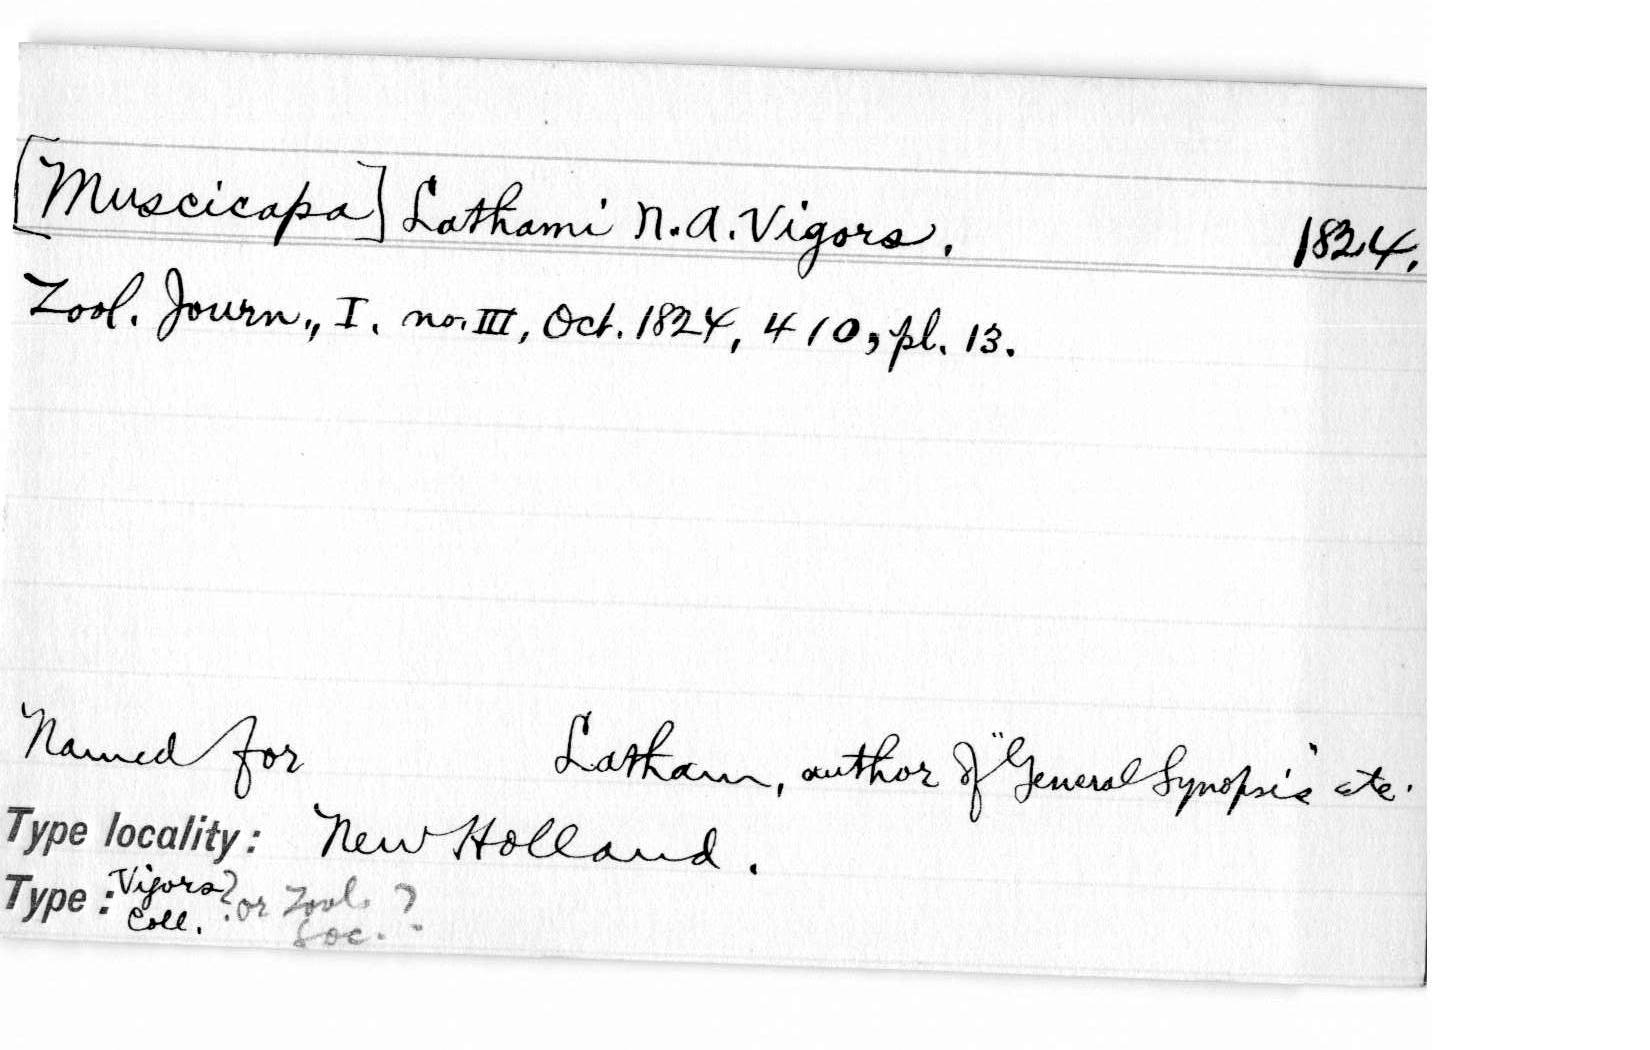 [Muscicapa] Lathami N.A. Vigors. 1824.
Zool. Journ., I. no. III, Oct. 1824, 410, pl. 13.
Named for Latham, author of "General Synopsis" etc.
Type locality: New Holland.
Type: Vigors Coll.? or Zool. Soc.?